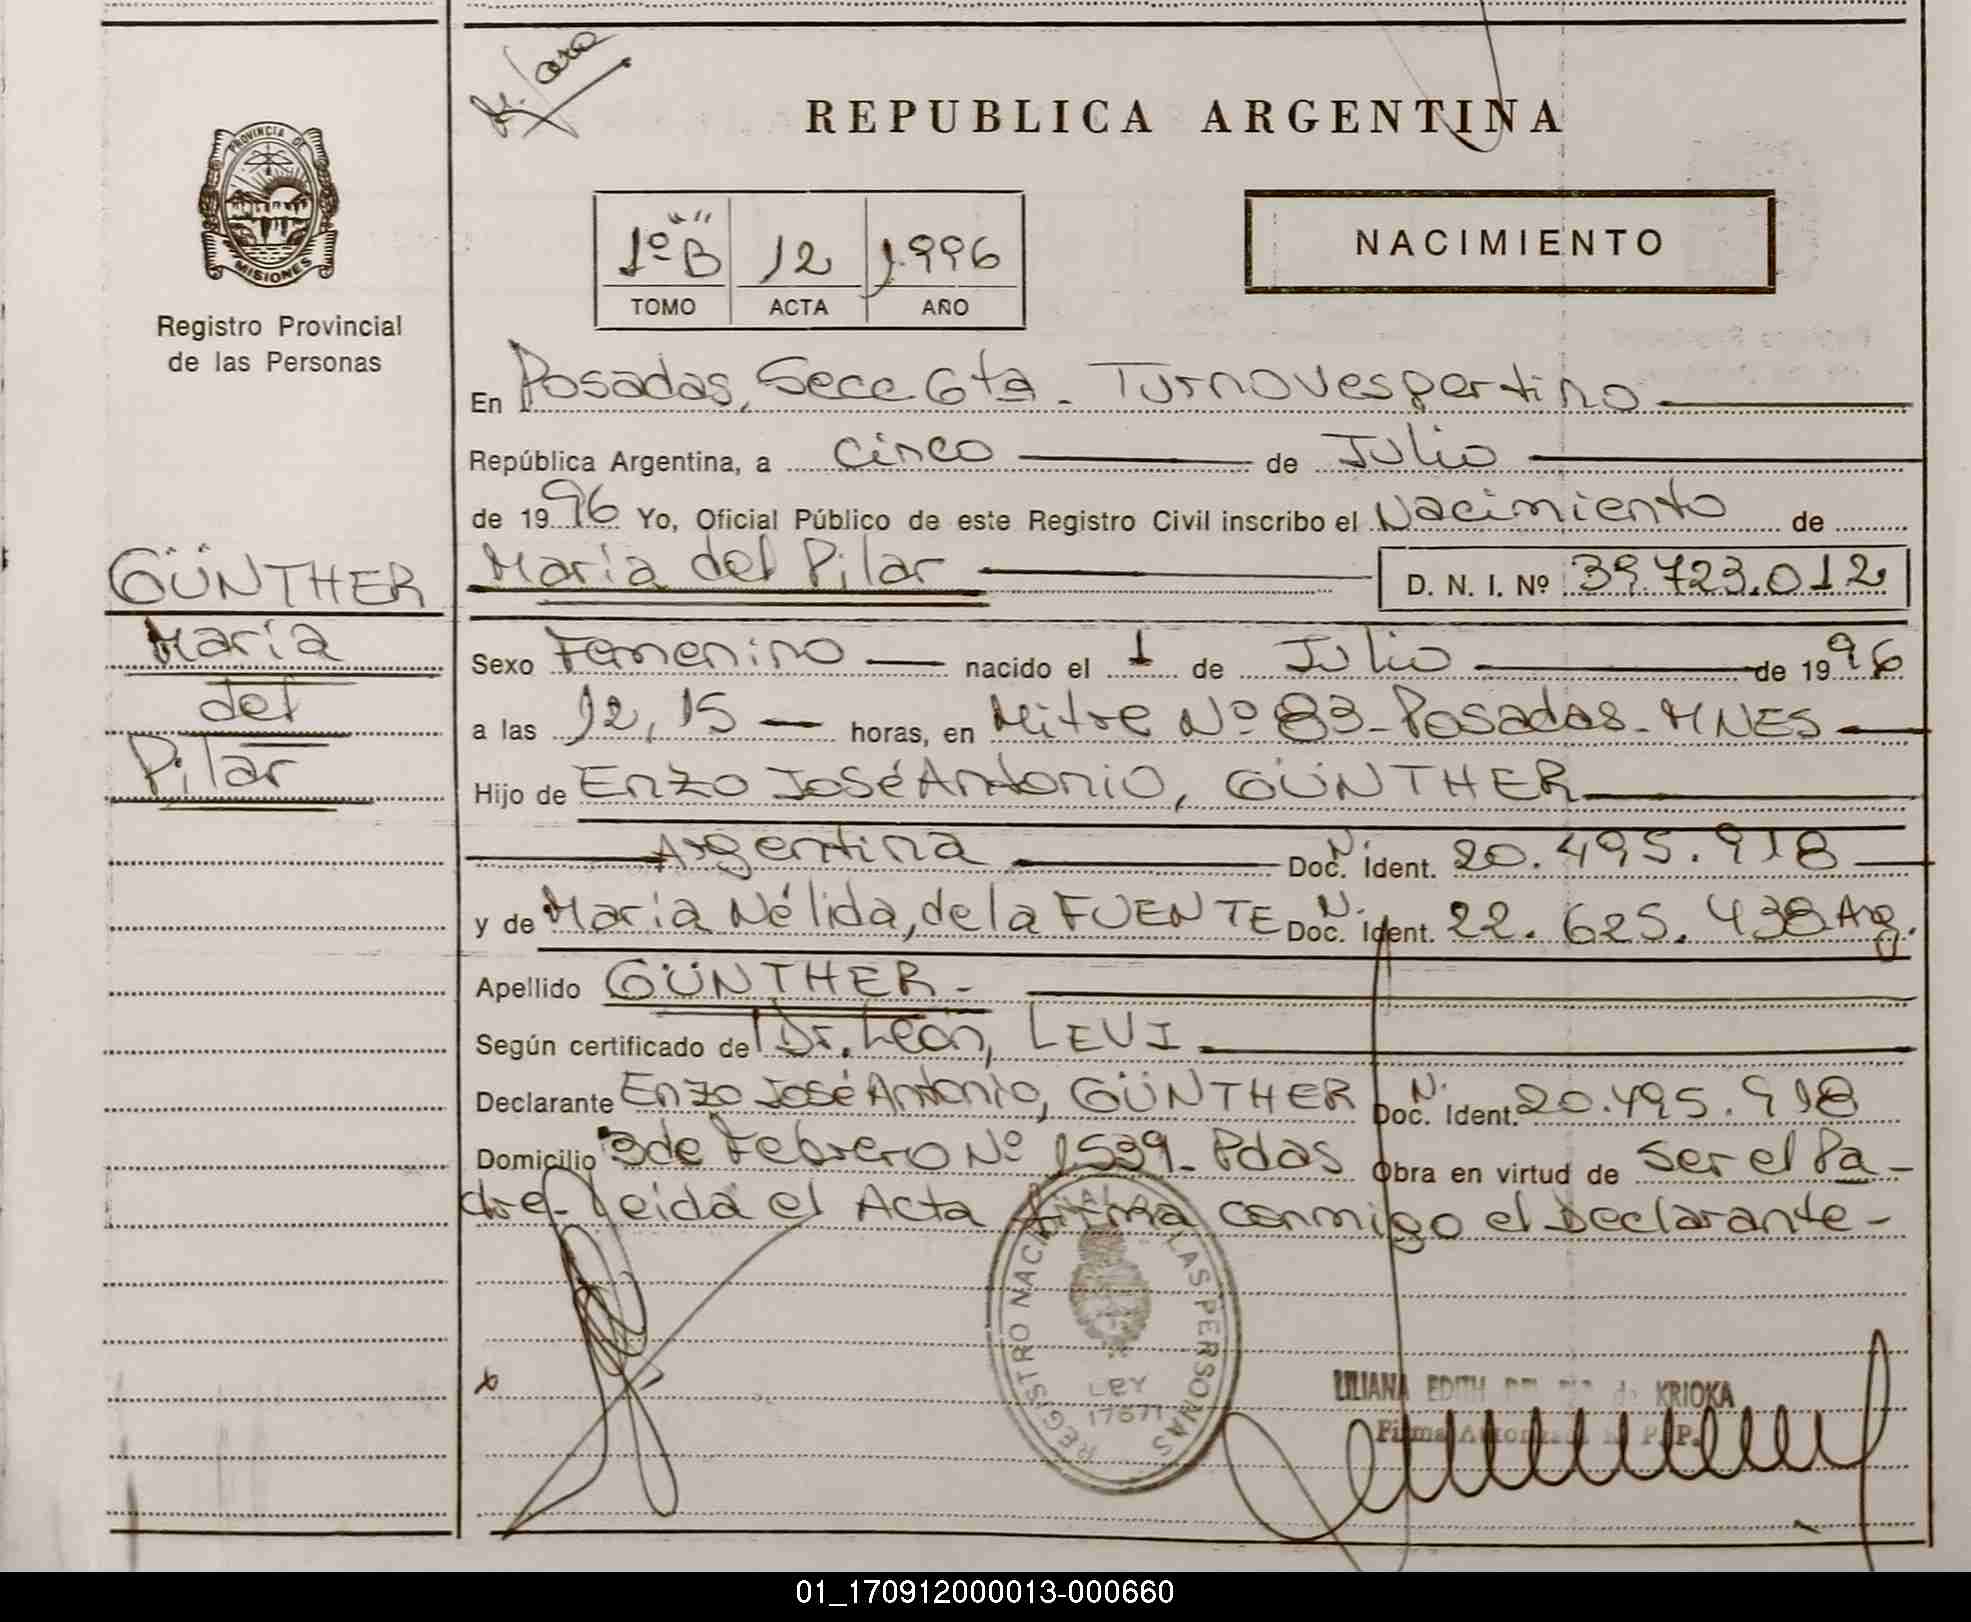 REPUBLICA ARGENTINA
PROVINCIA DE
MISIONES
Registro Provincial
de las Personas
1º B 12 1996
TOMO ACTA AÑO
NACIMIENTO
En Posadas, Secc 6ta - Turno Vespertino
República Argentina, a cinco de Julio
de 1996 Yo, Oficial Público de este Registro Civil inscribo el Nacimiento de
GÜNTHER
María
del
Pilar
María del Pilar D. N. I. Nº 39.723.012
Sexo Femenino nacido el 1 de Julio de 1996
a las 12,15 horas, en Mitre Nº 83 - Posadas - MNES
Hijo de Enzo José Antonio, GÜNTHER
Argentina Doc. N. Ident. 20.495.918
y de María Nélida, de la FUENTE Doc. N. Ident. 22.625.438 Arg.
Apellido GÜNTHER -
Según certificado de Dr. León, LEVI
Declarante Enzo José Antonio, GÜNTHER Doc. N. Ident. 20.495.918
Domicilio 3 de Febrero Nº 1539 - Pdas Obra en virtud de ser el Pa-
dre - Leída el Acta firma conmigo el Declarante -
REGISTRO NACIONAL LAS PERSONAS
LEY
17671
LILIANA EDITH de KRIOKA
Firma Autorizada R. P. P.
01_170912000013-000660